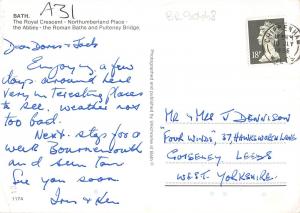 A31
BATH.
The Royal Crescent - Northumberland Place -
the Abbey - the Roman Baths and Pulteney Bridge.
Dear Doris & Jack
Enjoying a few
days around here
very interesting places
to see. weather not
too bad.
Next stop for a
week Bournemouth
and then home
See you soon
& Ken
1174
18P
Mr & Mrs J DENNISON
"FOUR WINDS", 37, HAWKSWORTH LANE
GUISELEY LEEDS
WEST YORKSHIRE.